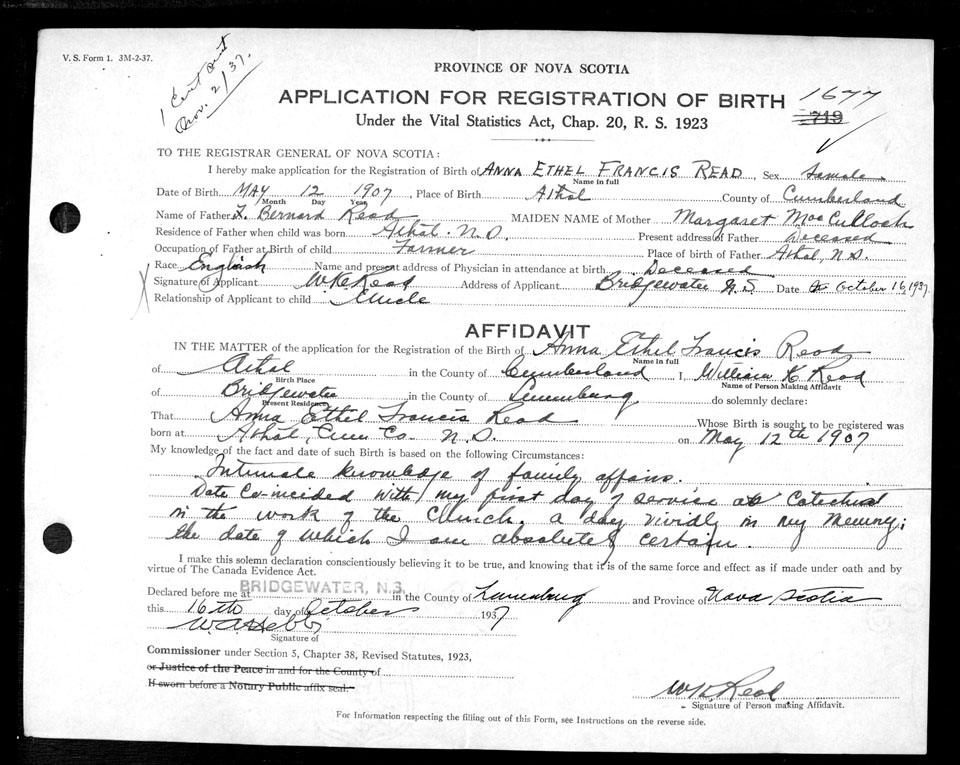 V. S. Form 1. 3M-2-37.
1 Cert out
Nov. 2/37.
PROVINCE OF NOVA SCOTIA
APPLICATION FOR REGISTRATION OF BIRTH 1677
Under the Vital Statistics Act, Chap. 20, R. S. 1923 719
TO THE REGISTRAR GENERAL OF NOVA SCOTIA:
I hereby make application for the Registration of Birth of ANNA ETHEL FRANCIS READ Sex Female
Name in full
Date of Birth MAY 12 1907, Place of Birth Athol County of Cumberland
Month Day Year
Name of Father Bernard Read MAIDEN NAME of Mother Margaret MacCulloch
Residence of Father when child was born Athol N.S. Present address of Father Deceased
Occupation of Father at Birth of child Farmer Place of birth of Father Athol, N.S.
Race English Name and present address of Physician in attendance at birth Deceased
X Signature of Applicant W.K. Read Address of Applicant Bridgewater N.S. Date October 16, 1937
Relationship of Applicant to child Uncle
AFFIDAVIT
IN THE MATTER of the application for the Registration of the Birth of Anna Ethel Francis Read
Name in full
of Athol in the County of Cumberland I, William K. Read
Birth Place Name of Person Making Affidavit
of Bridgewater in the County of Lunenburg do solemnly declare:
Present Residence
That Anna Ethel Francis Read Whose Birth is sought to be registered was
born at Athol, Cum Co. N.S. on May 12th 1907
My knowledge of the fact and date of such Birth is based on the following Circumstances:
Intimate knowledge of family affairs.
Date Co-incided with my first day of service as Catechist
in the work of the Church, a day vividly in my memory;
the date of which I am absolutely certain.
I make this solemn declaration conscientiously believing it to be true, and knowing that it is of the same force and effect as if made under oath and by
virtue of The Canada Evidence Act.
Declared before me at BRIDGEWATER, N.S. in the County of Lunenburg and Province of Nova Scotia
this 16th day of October 1937
W.A. Hebb
Signature of
Commissioner under Section 5, Chapter 38, Revised Statutes, 1923,
or Justice of the Peace in and for the County of
If sworn before a Notary Public affix seal.
W.K. Read
Signature of Person making Affidavit.
For Information respecting the filling out of this Form, see Instructions on the reverse side.